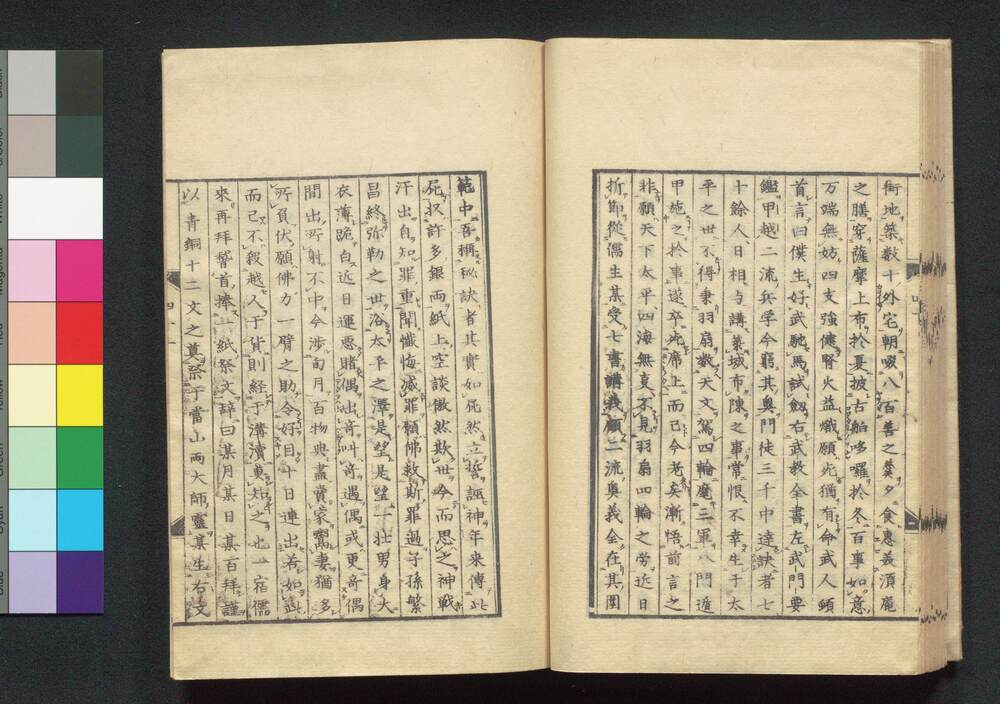 街地築数十外宅朝啜八百善之羹夕食惠義須菴
之膳穿薩摩上布於夏披古舶哆囉於冬百事如意
万端無妨四支強健腎火益熾願先猶有命武人頓
首言曰僕生好武馳馬試劔右武教全書左武門要
鑑甲越二流兵学今窮其奥門徒三千中達訣者七
十餘人日相与講築城布陳之事常恨不幸生于太
平之世不得乗羽扇数天文駕四輪魔三軍八門遁
甲施之於事遂卒死席上而已今老矣漸悟前言之
非願天下太平四海無哀不見羽扇四輪之労近日
折節從儒生某受七書講義願二流奥義全在其圍
範中吾稱秘訣者其實如死然立誓誣神年来傳此
死扠許多銀両紙上空談傲然欺世今而思之神戦
汗出自知罪重聞懺悔滅罪願佛救斯罪過子孫繁
昌終弥勒之世浴太平之澤是望是望一壮男身大
衣薄跪白近日運悪賭偶出竒叫竒遇偶或更竒偶
間出所射不中今渉旬月百物典盡賣家鬻妻猶多
所負伏願佛力一臂之助令好目十日連出若如此
而已不殺越人于貨則経于溝瀆莫知之也一宿儒
来再拜稽首擦 紙祭文辞曰某月某日某百拜謹
以青銅十二文之奠祭于當山両大師靈某生右文